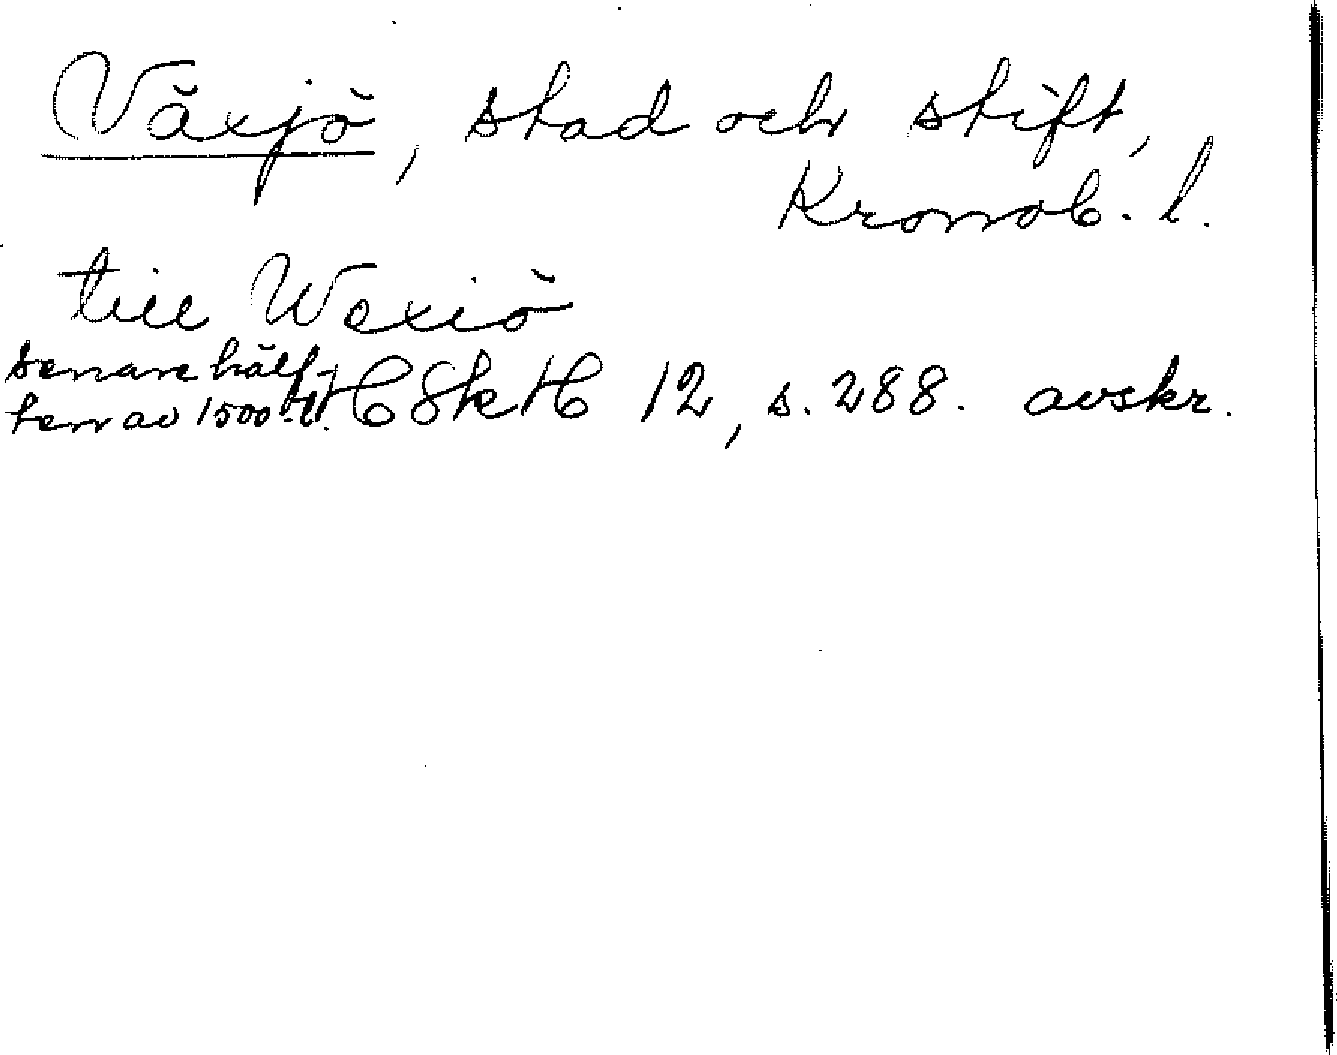 Växjö, stad och stift,
Kronob. l.
till Wexiö
senare hälf-
ten av 1500-t. HSkH 12, s. 288. avskr.